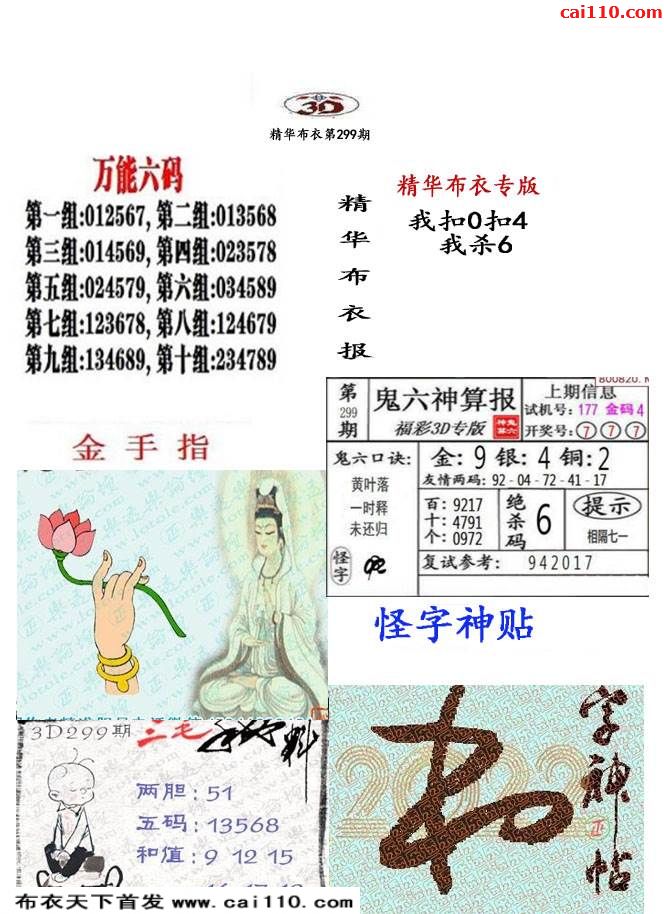 cai110.com
3D
精华布衣第299期
万能六码
第一组:012567, 第二组:013568
第三组:014569, 第四组:023578
第五组:024579, 第六组:034589
第七组:123678, 第八组:124679
第九组:134689, 第十组:234789
精华布衣报
精华布衣专版
我扣0扣4
我杀6
金手指
第299期
鬼六神算报
福彩3D专版
上期信息
试机号: 177 金码 4
开奖号: 7 7 7
鬼六口诀:
黄叶落
一时释
未还归
怪字
金: 9 银: 4 铜: 2
友情两码: 92-04-72-41-17
百: 9217
十: 4791
个: 0972
绝杀码
6
提示
相隔七一
复试参考: 942017
怪字神贴
3D299期
二毛
料
两胆: 51
五码: 13568
和值: 9 12 15
字神帖
2022
布衣天下首发 www.cai110.com